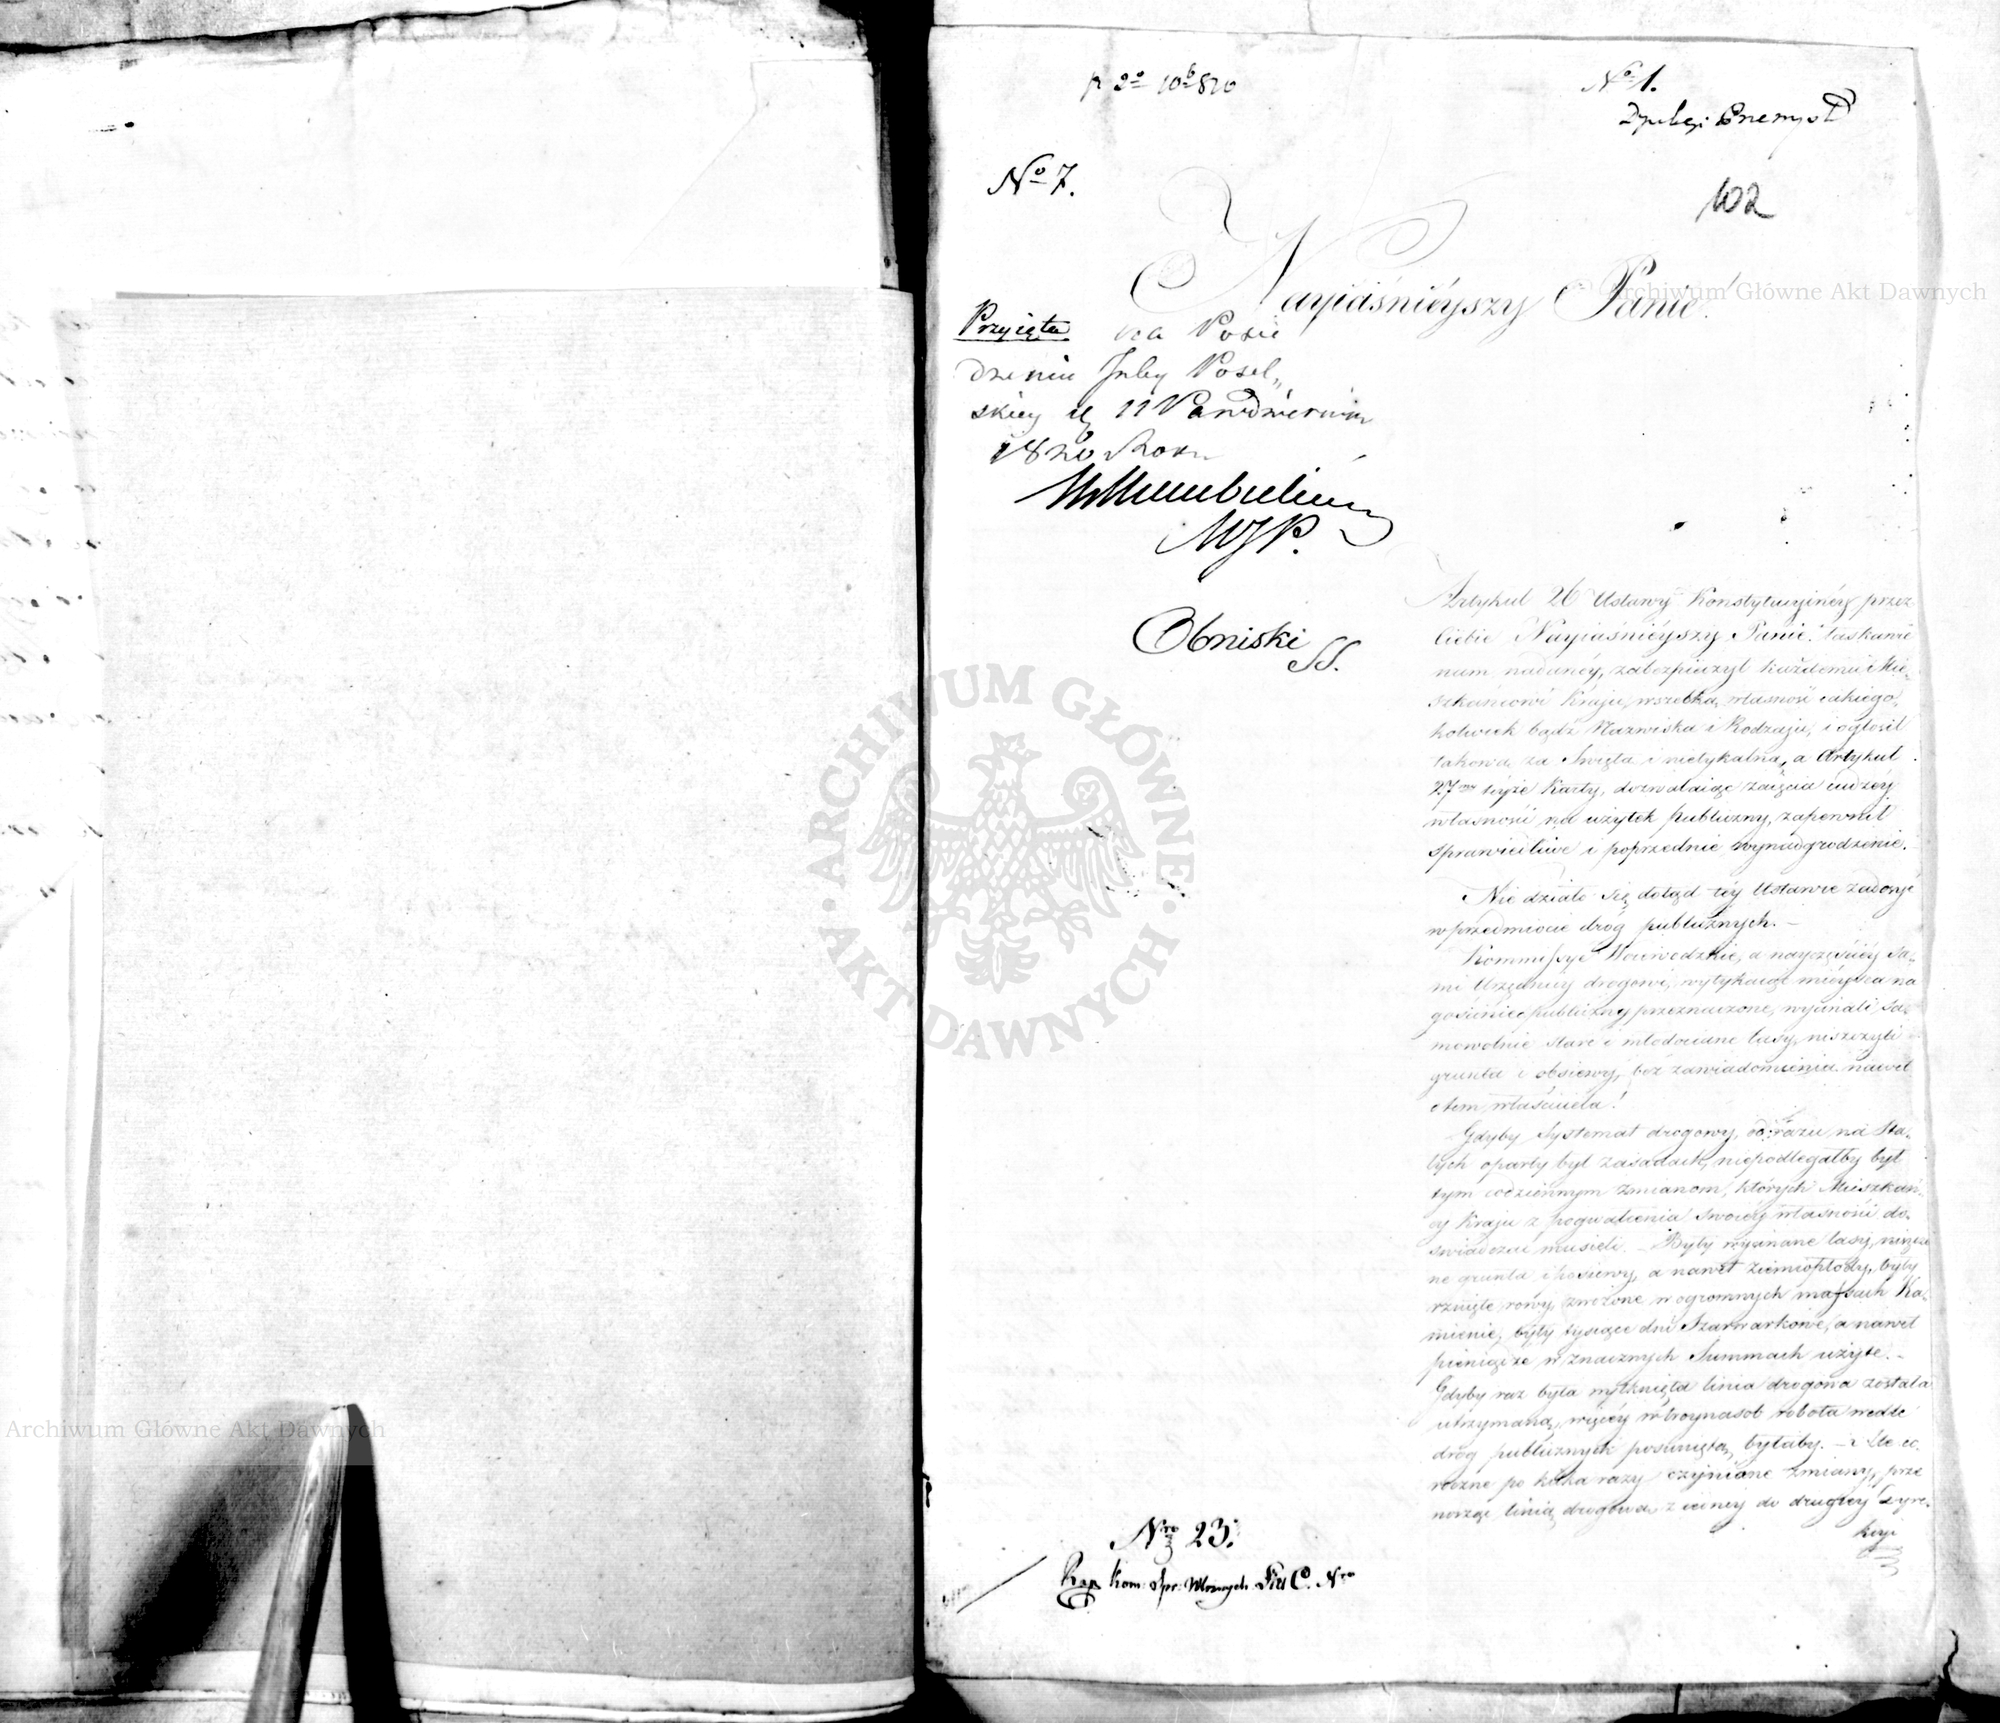 N° 1.
102
N° 7.
Nayiaśnieyszy Panie!
Przyięta na Posie
dzeniu Izby Posel„
skiey d. 11 Październik
1820 Roku
MIP.
Obniski
SS.
Artykuł 26 Ustawy Konstytucyinéy przez
Ciebie Nayiaśniéyszy Panie! łaskawie
nam nadanéy, zabezpieczył każdemu Mie„
szkańcowi Kraju, wszelką własność iakiego„
kolwiek bądź Nazwiska i Rodzaju, i ogłosił
takową za Świętą i nietykalną, a Artykuł
27my téyże Karty, dozwalaiąc zaięcia cudzéy
własności na użytek publiczny, zapewnił
sprawiedliwe i poprzednie wynadgrodzenie.
Nie działo się dotąd téy Ustawie zadosyć
w przedmiocie dróg publicznych. —
Kommissye Woiewodzkie, a nayczęściéy sa„
mi Urzędnicy drogowi, wytykaiąc mieysca na
gościniec publiczny przeznaczone, wycinali sa„
mowolnie stare i młodociane lasy, niszczyli
grunta i obsiewy, bez zawiadomienia nawet
o tem właściciela!
Gdyby Systemat drogowy, od razu na Sta„
łych oparty był zasadach, niepodlegałby był
tym codziennym zmianom, których Mieszkań„
cy Kraju z pogwałcenia swoiey własności do„
świadczać musieli. — Były wycinane lasy, niszczo
ne grunta i zasiewy, a nawet ziemiopłody, były
rznięte rowy, zwożone w ogromnych massach Ka„
mienie, były tysiące dni Szarwarkowe, a nawet
pieniądze w znacznych Summach użyte. —
Gdyby raz była wytknięta linia drogowa została
utrzymaną, więcéy w tróynasób robota wedle
dróg publicznych posuniętą byłaby. — Ale co„
rocznie po kilka razy czynione zmiany, prze
nosząc linią drogową z iedney do drugiéy Dyre„
kcyi
Nro 23.
Kom: Spr: Wewnych C. Nro
Archiwum Główne Akt Dawnych
ARCHIWUM GŁÓWNE · AKT DAWNYCH ·
Archiwum Główne Akt Dawnych